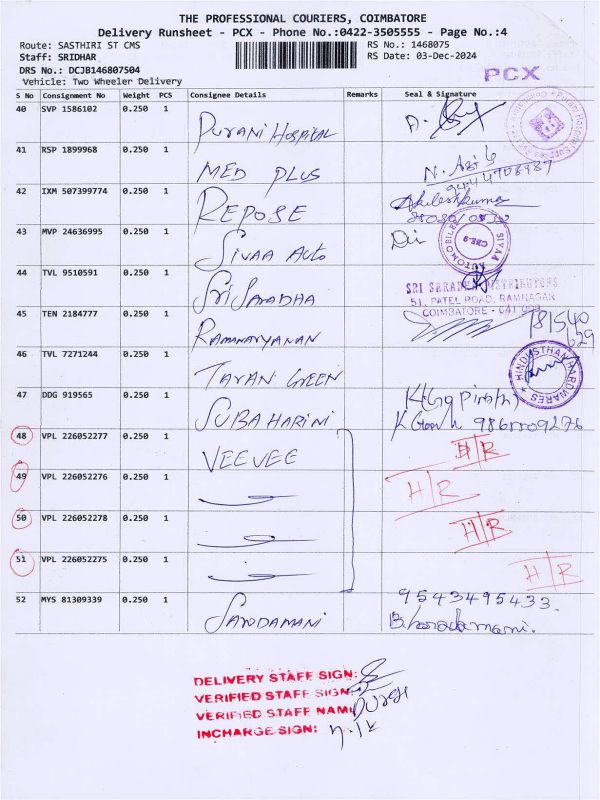 THE PROFESSIONAL COURIERS, COIMBATORE
Delivery Runsheet - PCX - Phone No.:0422-3505555 - Page No.:4
Route: SASTHIRI ST CMS
RS No.: 1468075
Staff: SRIDHAR
RS Date: 03-Dec-2024
DRS No.: DCJB146807504
Vehicle: Two Wheeler Delivery
PCX
S No Consignment No Weight PCS Consignee Details Remarks Seal & Signature
40 SVP 1586102 0.250 1
PURANI HOSPITAL
41 RSP 1899968 0.250 1
MED PLUS
42 IXM 507399774 0.250 1
REPOSE
Akileshkumar
43 MVP 24636995 0.250 1
SIVAA AUTO
SIVAA AUTOMOBILES CBE-9
44 TVL 9510591 0.250 1
Sri Saradha
SRI SHRADHA DISTRIBUTORS
51, PATEL ROAD, RAMNAGAR
COIMBATORE - 641 009
45 TEN 2184777 0.250 1
781540
629
46 TVL 7271244 0.250 1
TARAN GREEN
HINDUSTHAN HARDWARES
47 DDG 919565 0.250 1
SUBA HARINI
48 VPL 226052277 0.250 1
VEEVEE
H/R
49 VPL 226052276 0.250 1
H/R
50 VPL 226052278 0.250 1
H/R
51 VPL 226052275 0.250 1
H/R
52 MYS 81309339 0.250 1
9543495433.
DELIVERY STAFF SIGN:
VERIFIED STAFF SIGN:
VERIFIED STAFF NAME
INCHARGE SIGN: